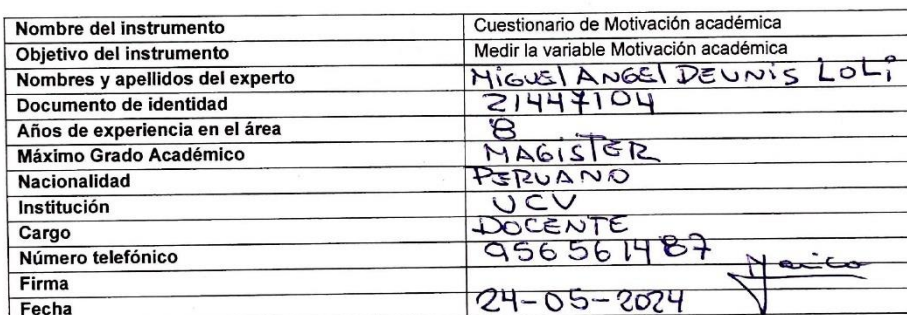 Nombre del instrumento Cuestionario de Motivación académica
Objetivo del instrumento Medir la variable Motivación académica
Nombres y apellidos del experto MiGUEl ANGEl DEUNiS LOLi
Documento de identidad 21447104
Años de experiencia en el área 8
Máximo Grado Académico MAGiSTER
Nacionalidad PERUANO
Institución UCV
Cargo DOCENTE
Número telefónico 956561487
Firma
Fecha 24-05-2024